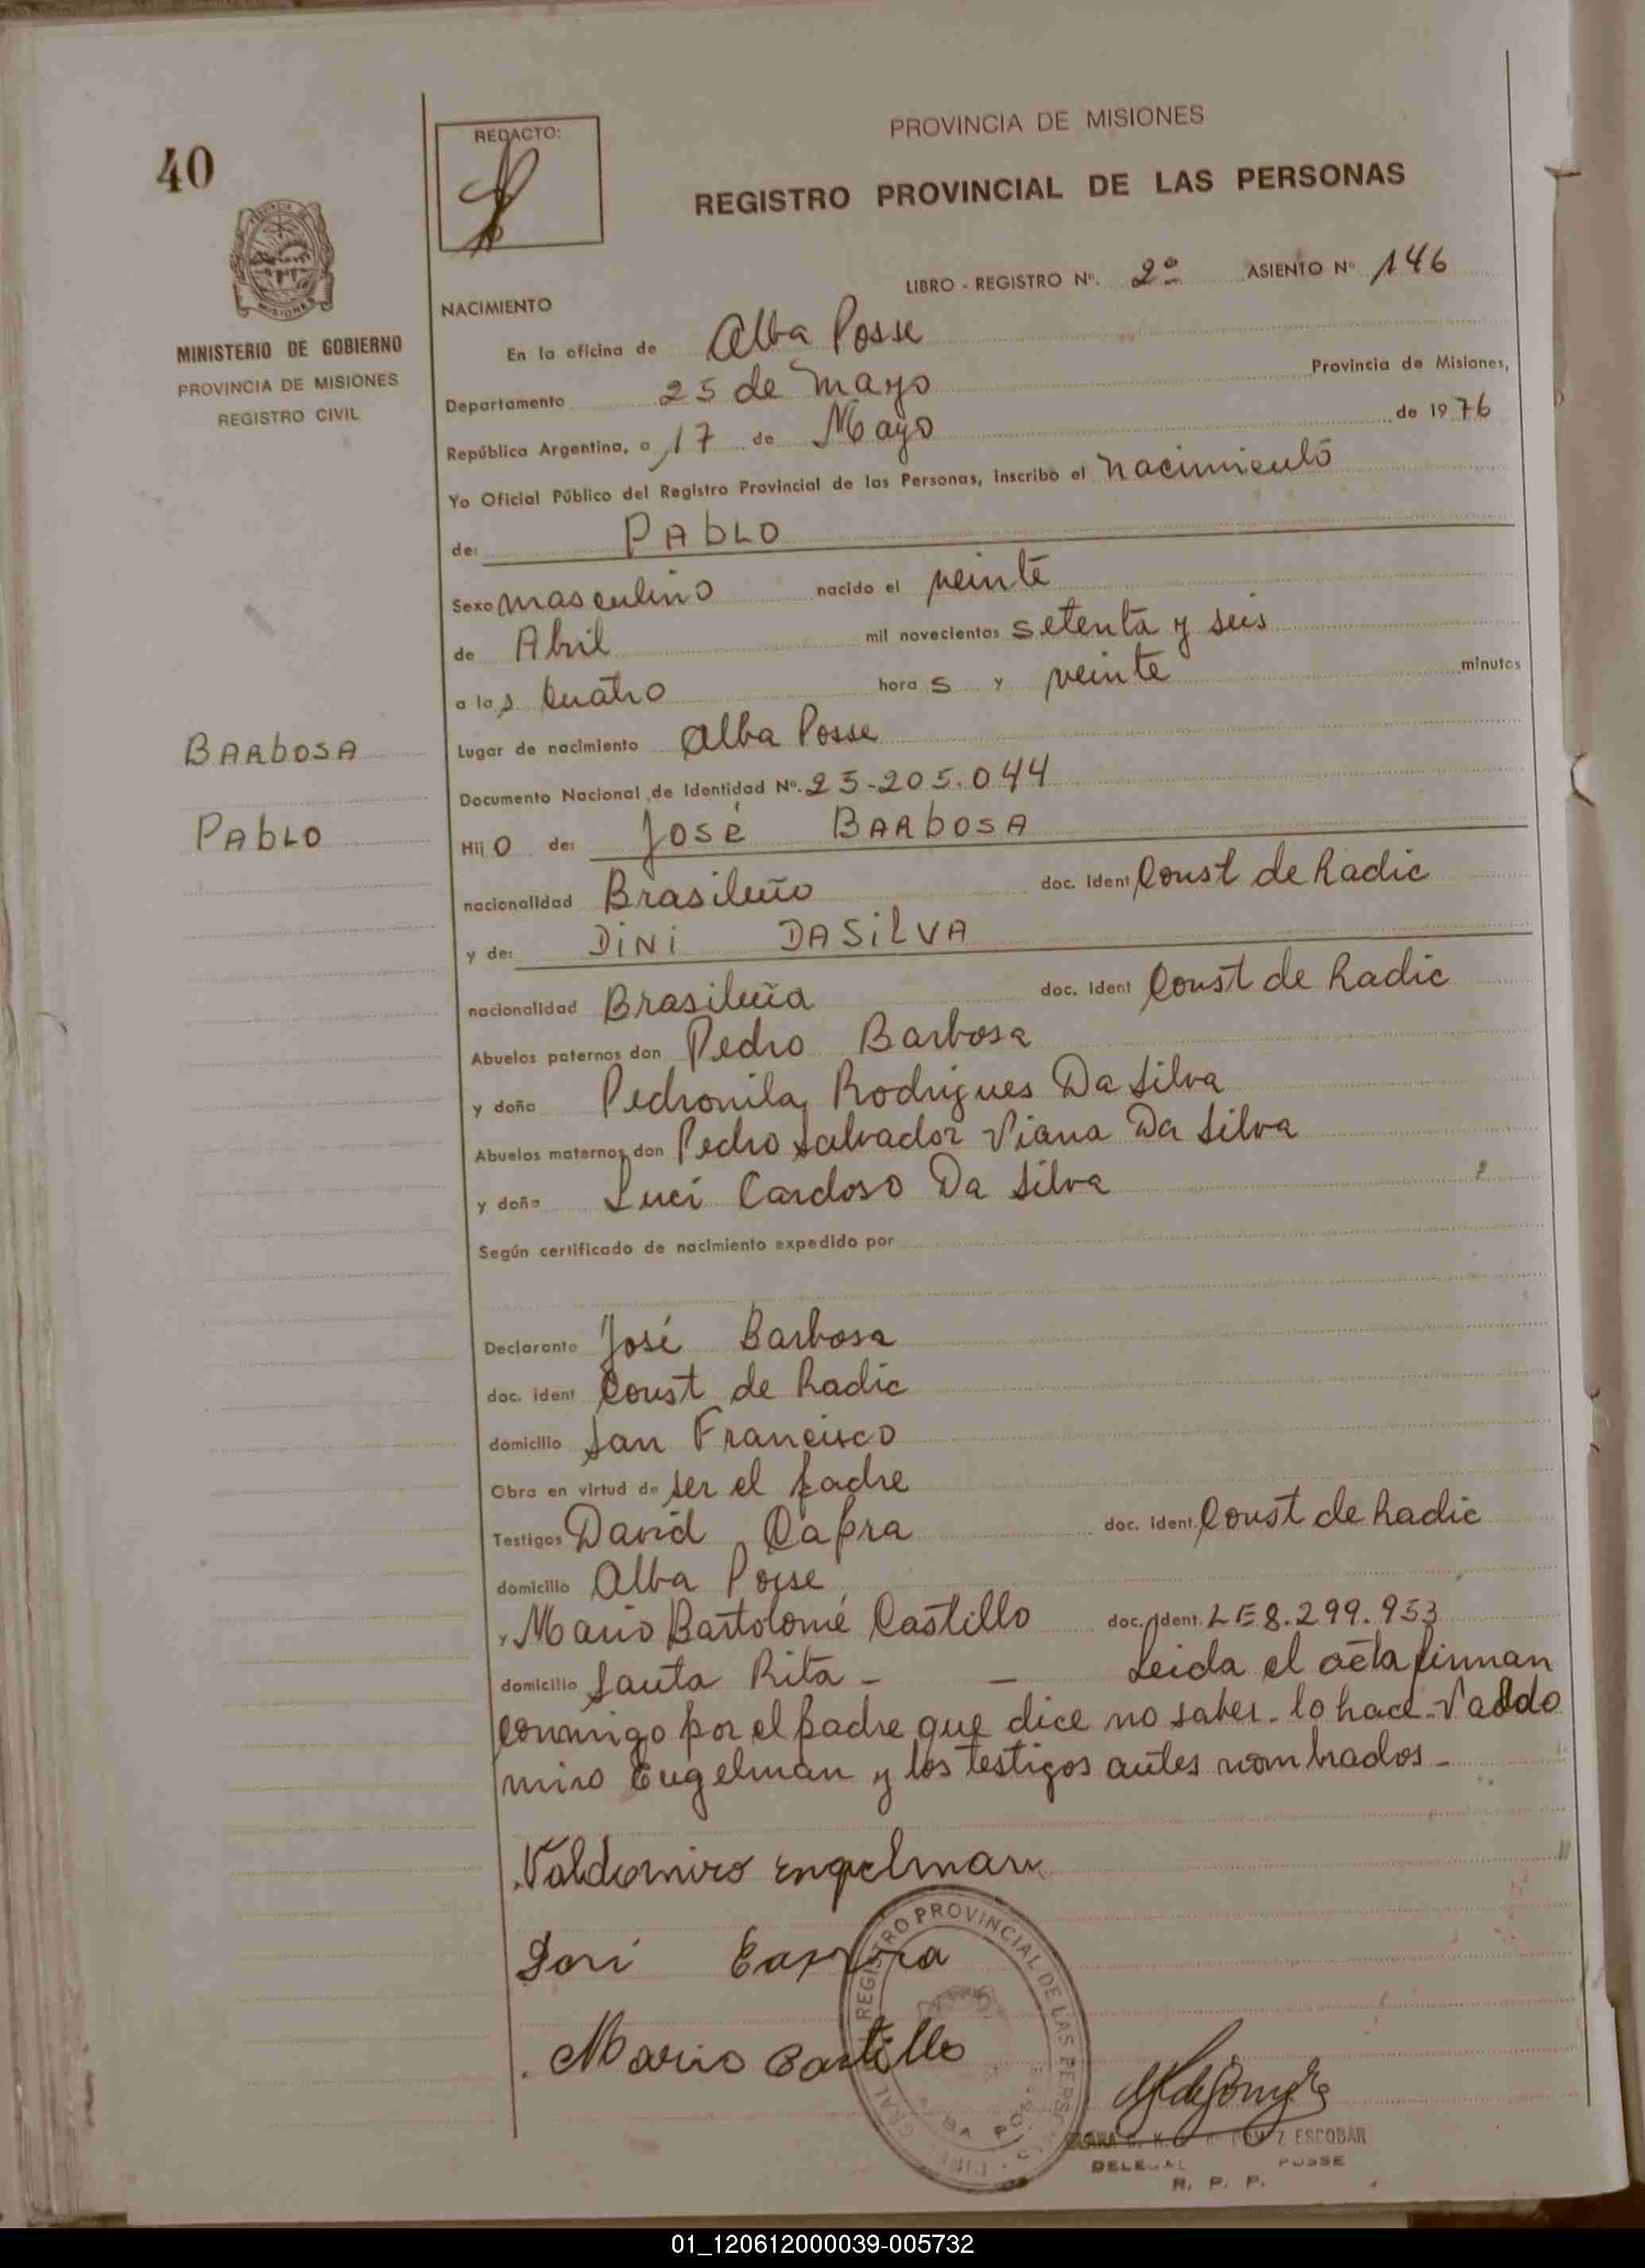 40
PROVINCIA DE MISIONES
MINISTERIO DE GOBIERNO
PROVINCIA DE MISIONES
REGISTRO CIVIL
REDACTO:
PROVINCIA DE MISIONES
REGISTRO PROVINCIAL DE LAS PERSONAS
LIBRO - REGISTRO Nº. 2º ASIENTO Nº 146
NACIMIENTO
En la oficina de Alba Posse
Departamento 25 de Mayo Provincia de Misiones,
República Argentina, a 17 de Mayo de 1976
Yo Oficial Público del Registro Provincial de las Personas, inscribo el nacimiento
de: PAbLO
Sexo masculino nacido el veinte
de Abril mil novecientos setenta y seis
a las cuatro horas y veinte minutos
BARbOSA
Lugar de nacimiento Alba Posse
Documento Nacional de Identidad Nº. 25-205.044
PAbLO
Hijo de: JOSÉ BARbOSA
nacionalidad Brasileño doc. Ident Const de Radic
y de: DiNi DASiLVA
nacionalidad Brasileña doc. Ident Const de Radic
Abuelos paternos don Pedro Barbosa
y doña Pedronila Rodrigues Da Silva
Abuelos maternos don Pedro Salvador Viana Da Silva
y doña Luci Cardoso Da Silva
Según certificado de nacimiento expedido por
Declarante José Barbosa
doc. ident Const de Radic
domicilio San Francisco
Obra en virtud de ser el padre
Testigos David Capra doc. ident. Const de Radic
domicilio Alba Posse
y Mario Bartolomé Castillo doc. Ident. LE 8.299.953
domicilio Santa Rita - - Leida el acta firman
conmigo por el padre que dice no saber lo hace Valdo
miro Engelman y los testigos antes nombrados -
Valdomiro Engelman
Mario Castillo
REGISTRO PROVINCIAL DE LAS PERSONAS
ESCOBAR
POSSE
R. P. P.
01_120612000039-005732